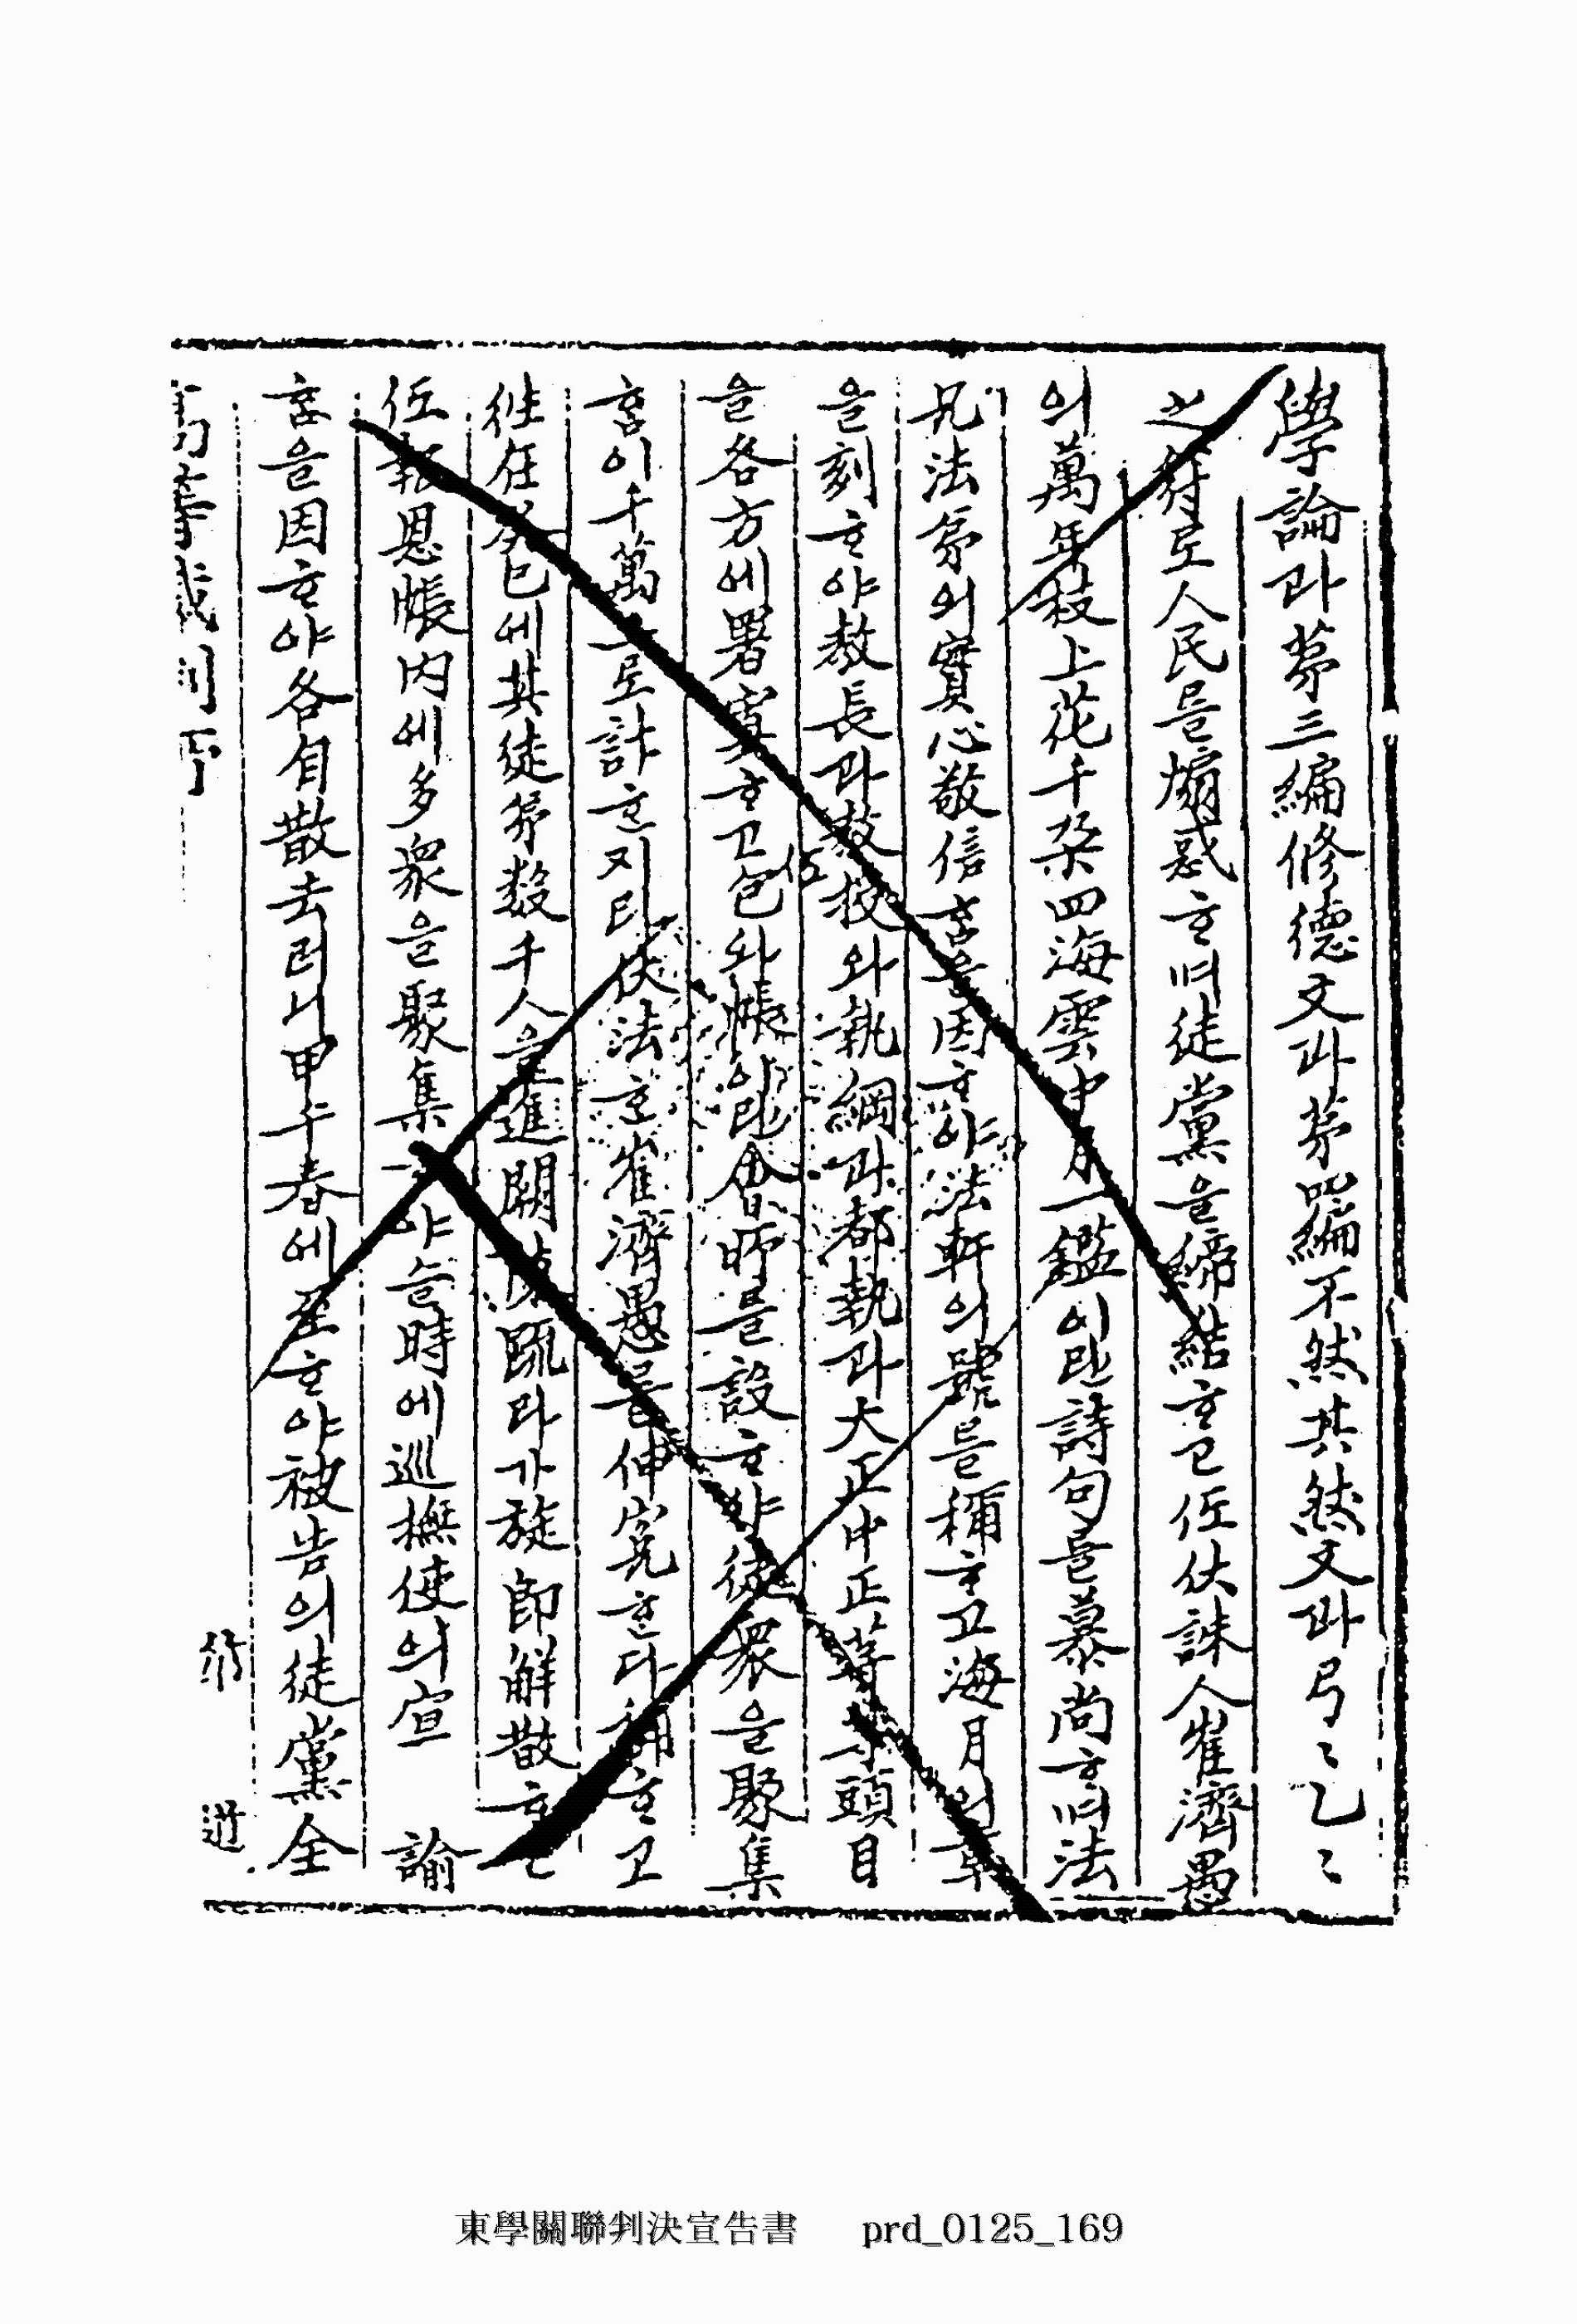 學論과 第三編修德文과 第四編不然其然文과 弓〻乙〻
之符로 人民을 煽惑ᄒᆞ며 徒黨을 締結ᄒᆞ고 伏誅人崔濟愚
의 萬年枝上花千朶四海雲中月一鑑이란 詩句를 慕尙ᄒᆞ며 法
兄法弟의 實心敬信ᄒᆞᆷ을 因ᄒᆞ야 法軒의 號를 稱ᄒᆞ고 海月의 章
을 刻ᄒᆞ야 敎長과 敎授와 執綱과 都執과 大正中正等 頭目
을 各方에 署寘ᄒᆞ고 包와 帳이란 會所를 設ᄒᆞ야 徒衆을 聚集
ᄒᆞᆷ이 千萬으로 計ᄒᆞᆫ지라 伏法ᄒᆞᆫ 崔濟愚를 伸寃ᄒᆞᆫ다 稱ᄒᆞ고
徃在癸巳에 其徒弟數千人을 進闕陳疏라가 旋卽解散ᄒᆞ고
報恩帳內에 多衆을 聚集ᄒᆞ야ᄂᆞᆯ 時에 巡撫使의 宣 諭
ᄒᆞᆷ을 因ᄒᆞ야 各自散去러니 甲午春에 至ᄒᆞ야 被告의 徒黨全
東學關聯判決宣告書 prd_0125_169